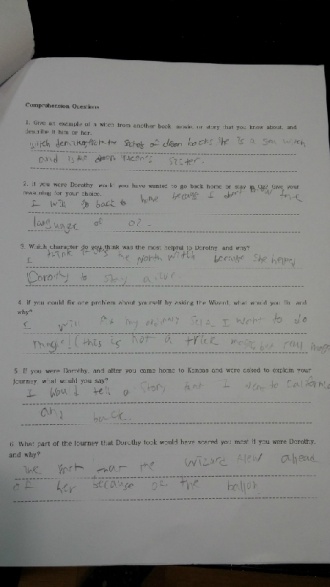 Comprehension Questions
1. Give an example of a witch from another book, movie, or story that you know about, and
describe it him or her.
is a sea witch
and is sister.
2. If you were Dorothy, would you have wanted to go back home or stay in Oz? Give your
reasoning for your choice.
I will go back to home because I don't
language of oz.
3. Which character do you think was the most helpful to Dorothy and why?
I think the North witch because she helped
Dorothy to stay alive.
4. If you could fix one problem about yourself by asking the Wizard, what would you fix and
why?
I will fix my I want to do
magic!! (this is not a trick magic but real magic
5. If you were Dorothy, and after you came home to Kansas and were asked to explain your
journey, what would you say?
I would tell a story that I went to California
and back.
6. What part of the journey that Dorothy took would have scared you most if you were Dorothy,
and why?
The part that the wizard flew ahead
of her because of the